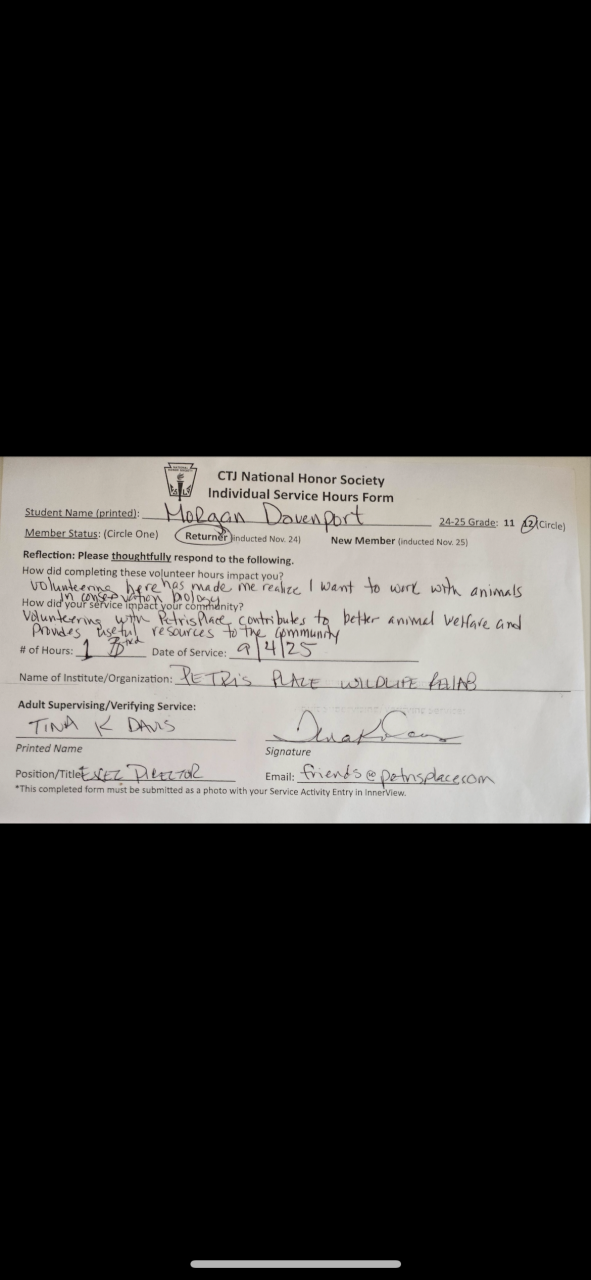 CTJ National Honor Society
Individual Service Hours Form
Student Name (printed): Morgan Davenport 24-25 Grade: 11 12 (Circle)
Member Status: (Circle One) Returner (inducted Nov. 24) New Member (inducted Nov. 25)
Reflection: Please thoughtfully respond to the following.
How did completing these volunteer hours impact you?
Volunteering here has made me realize I want to work with animals
in conservation biology
How did your service impact your community?
Volunteering with PetrisPlace contributes to better animal welfare and
provides useful resources to the community
# of Hours: 1 Date of Service: 9/4/25
Name of Institute/Organization: PETRIS PLACE WILDLIFE REHAB
Adult Supervising/Verifying Service:
TINA K DAVIS
Printed Name Signature
Position/Title EXEC DIRECTOR Email: friends@petrisplace.com
*This completed form must be submitted as a photo with your Service Activity Entry in InnerView.